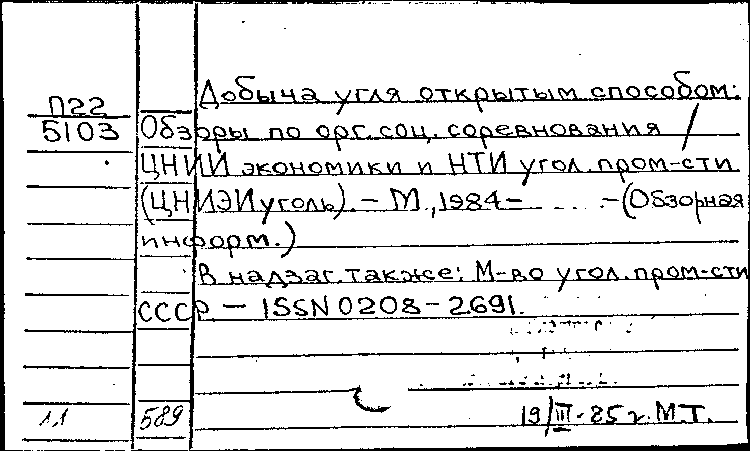 Добыча угля открытым способом:
П22
5103 Обзоры по орг. соц. соревнования /
ЦНИИ экономики и НТИ угол. пром-сти
(ЦНИЭИуголь). – М., 1984 – . . . . – (Обзорная
информ.)
В надзаг. также: М-во угол. пром-сти
СССР – ISSN 0208–2691.
1.1 589 19/III-85 г. М.Т.